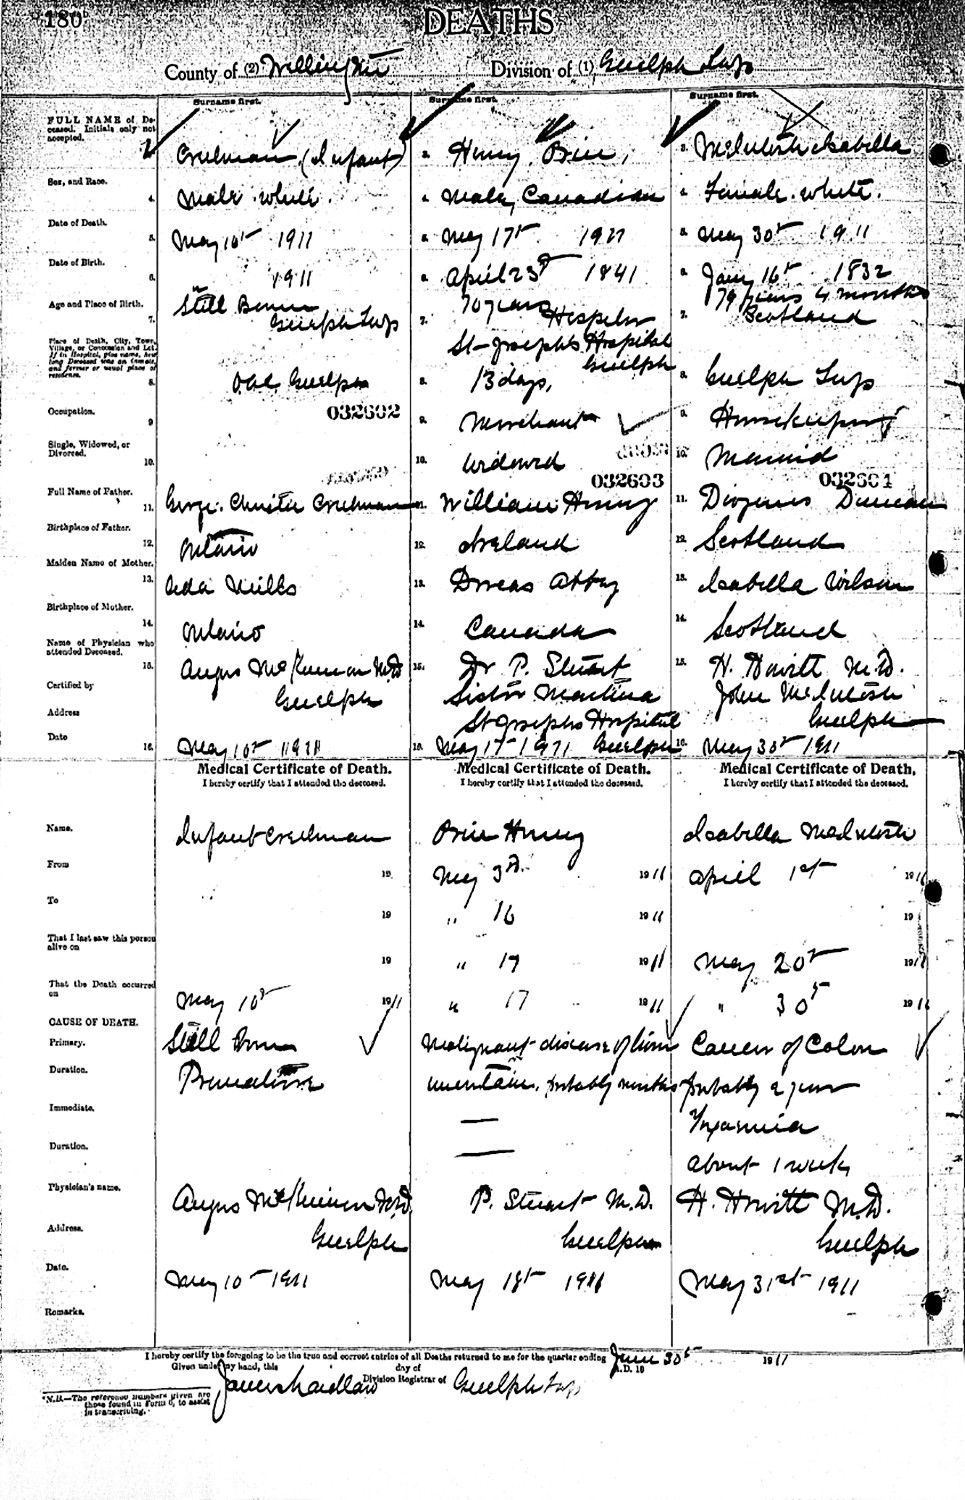 180
DEATHS
County of (2) Wellington Division of (1) Guelph Twp
Surname first. Surname first. Surname first.
FULL NAME of De-
ceased. Initials only not
accepted.
(Infant) 2. Henry, Brice, 3. McIntosh Isabella
Sex, and Race. 4. Male. white. 4. Male, Canadian 4. Female. white.
Date of Death. 5. May 10th 1911 5. May 17th 1911 5. May 30th 1911
Date of Birth. 6. 1911 6. April 23rd 1841 6. Jany 16th 1832
Age and Place of Birth. 7. Still Born Guelph Twp 7. 70 years Hespeler 7. 79 years 4 months Scotland
Place of Death, City, Town,
Village, or Concession and Lot.
If in Hospital, give name, how
long Deceased was an inmate,
and former or usual place of
residence.
8. Guelph 8. St Joseph's Hospital Guelph 13 days, 8. Guelph Twp
Occupation. 9. 032602 9. Merchant 9. Housekeeping
Single, Widowed, or
Divorced. 10. 10. Widowed 10. Married
032603 032604
Full Name of Father. 11. George Christie 11. William Henry 11. Duncan
Birthplace of Father. 12. Ontario 12. Ireland 12. Scotland
Maiden Name of Mother. 13. Ada Mills 13. Dorcas Abbey 13. Isabella Wilson
Birthplace of Mother. 14. Ontario 14. Canada 14. Scotland
Name of Physician who
attended Deceased. 15. Angus McKinnon M.D. 15. Dr P. Stuart 15. H. Howitt M.D.
Certified by Guelph Sister Martina John McIntosh
Address St Josephs Hospital Guelph
Date 16. May 10th 1911 16. May 17th 1911 Guelph 16. May 30th 1911
Medical Certificate of Death. Medical Certificate of Death. Medical Certificate of Death.
I hereby certify that I attended the deceased. I hereby certify that I attended the deceased. I hereby certify that I attended the deceased.
Name. Infant Brice Henry Isabella McIntosh
From 19 May 3rd 1911 April 1st 1911
To 19 " 16 1911 19
That I last saw this person
alive on 19 " 17 1911 May 20th 1911
That the Death occurred
on May 10th 1911 " 17 1911 " 30th 1911
CAUSE OF DEATH.
Primary. Still Born Malignant disease of liver Cancer of Colon
Duration. Premature uncertain, probably months probably a year
Immediate. —
Duration. — about 1 week
Physician's name. Angus McKinnon M.D. P. Stuart M.D. H. Howitt M.D.
Address. Guelph Guelph Guelph
Date. May 10th 1911 May 18th 1911 May 31st 1911
Remarks.
I hereby certify the foregoing to be the true and correct entries of all Deaths returned to me for the quarter ending June 30th 1911
Given under my hand, this day of A.D. 19
James Laidlaw Division Registrar of Guelph Twp
*N.B.—The reference numbers given are
those found in Form 6, to assist
in transcribing.